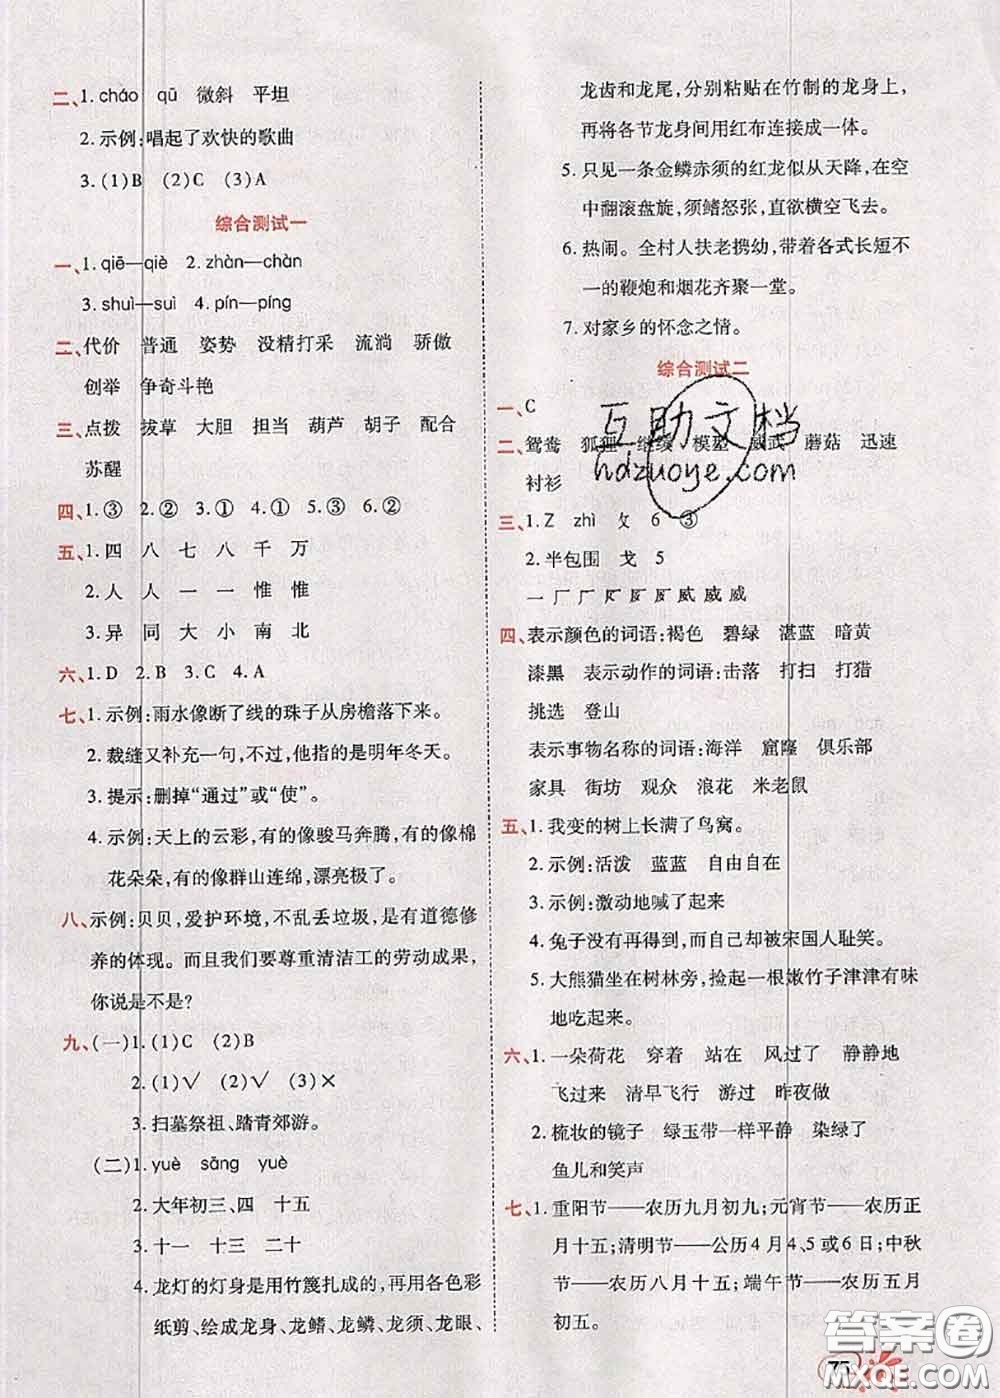 二、1. cháo qū 微斜 平坦
2. 示例:唱起了欢快的歌曲
3. (1)B (2)C (3)A
综合测试一
一、1. qiē—qiè 2. zhàn—chàn
3. shuì—suì 4. pín—píng
二、代价 普通 姿势 没精打采 流淌 骄傲
创举 争奇斗艳
三、点拨 拔草 大胆 担当 葫芦 胡子 配合
苏醒
四、1.③ 2.② 3.① 4.① 5.③ 6.②
五、1. 四 八 七 八 千 万
2. 人 人 一 一 惟 惟
3. 异 同 大 小 南 北
六、1. D 2. B 3. C 4. A
七、1. 示例:雨水像断了线的珠子从房檐落下来。
2. 裁缝又补充一句,不过,他指的是明年冬天。
3. 提示:删掉“通过”或“使”。
4. 示例:天上的云彩,有的像骏马奔腾,有的像棉
花朵朵,有的像群山连绵,漂亮极了。
八、示例:贝贝,爱护环境,不乱丢垃圾,是有道德修
养的体现。而且我们要尊重清洁工的劳动成果,
你说是不是?
九、(一)1. (1)C (2)B
2. (1)√ (2)√ (3)×
3. 扫墓祭祖、踏青郊游。
(二)1. yuè sǎng yuè
2. 大年初三、四 十五
3. 十一 十三 二十
4. 龙灯的灯身是用竹篾扎成的,再用各色彩
纸剪、绘成龙身、龙鳍、龙鳞、龙须、龙眼、
龙齿和龙尾,分别粘贴在竹制的龙身上,
再将各节龙身间用红布连接成一体。
5. 只见一条金鳞赤须的红龙似从天降,在空
中翻滚盘旋,须鳍怒张,直欲横空飞去。
6. 热闹。全村人扶老携幼,带着各式长短不
一的鞭炮和烟花齐聚一堂。
7. 对家乡的怀念之情。
综合测试二
一、C
二、鸳鸯 狐狸 继续 模型 威武 蘑菇 迅速
衬衫
三、1. Z zhì 攵 6 ③
2. 半包围 戈 5
一 厂 厂 威 威 威
四、表示颜色的词语:褐色 碧绿 湛蓝 暗黄
漆黑 表示动作的词语:击落 打扫 打猎
挑选 登山
表示事物名称的词语:海洋 窟窿 俱乐部
家具 街坊 观众 浪花 米老鼠
五、1. 我变的树上长满了鸟窝。
2. 示例:活泼 蓝蓝 自由自在
3. 示例:激动地喊了起来
4. 兔子没有再得到,而自己却被宋国人耻笑。
5. 大熊猫坐在树林旁,捡起一根嫩竹子津津有味
地吃起来。
六、1. 一朵荷花 穿着 站在 风过了 静静地
飞过来 清早飞行 游过 昨夜做
2. 梳妆的镜子 绿玉带一样平静 染绿了
鱼儿和笑声
七、1. 重阳节——农历九月初九;元宵节——农历正
月十五;清明节——公历4月4、5或6日;中秋
节——农历八月十五;端午节——农历五月
初五。
互助文档
hdzuoye.com
75
答案圈
MXQE.COM